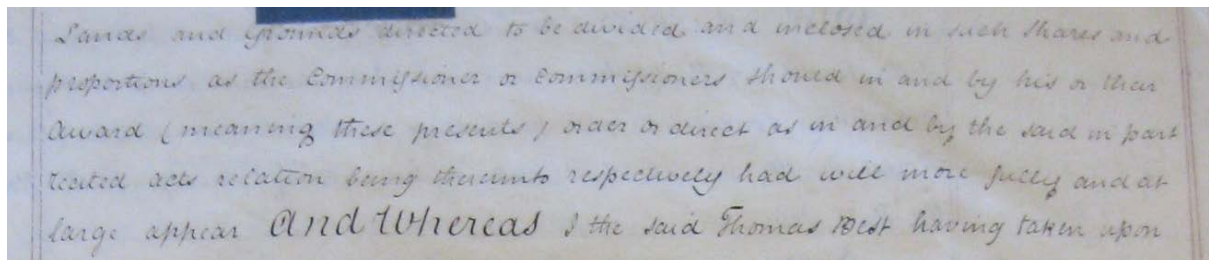 Lands and Grounds directed to be divided and inclosed in such Shares and
proportions as the Commissioner or Commissioners should in and by his or their
Award (meaning these presents) order or direct as in and by the said in part
recited acts relation being thereunto respectively had will more fully and at
large appear And Whereas I the said Thomas Best having taken upon